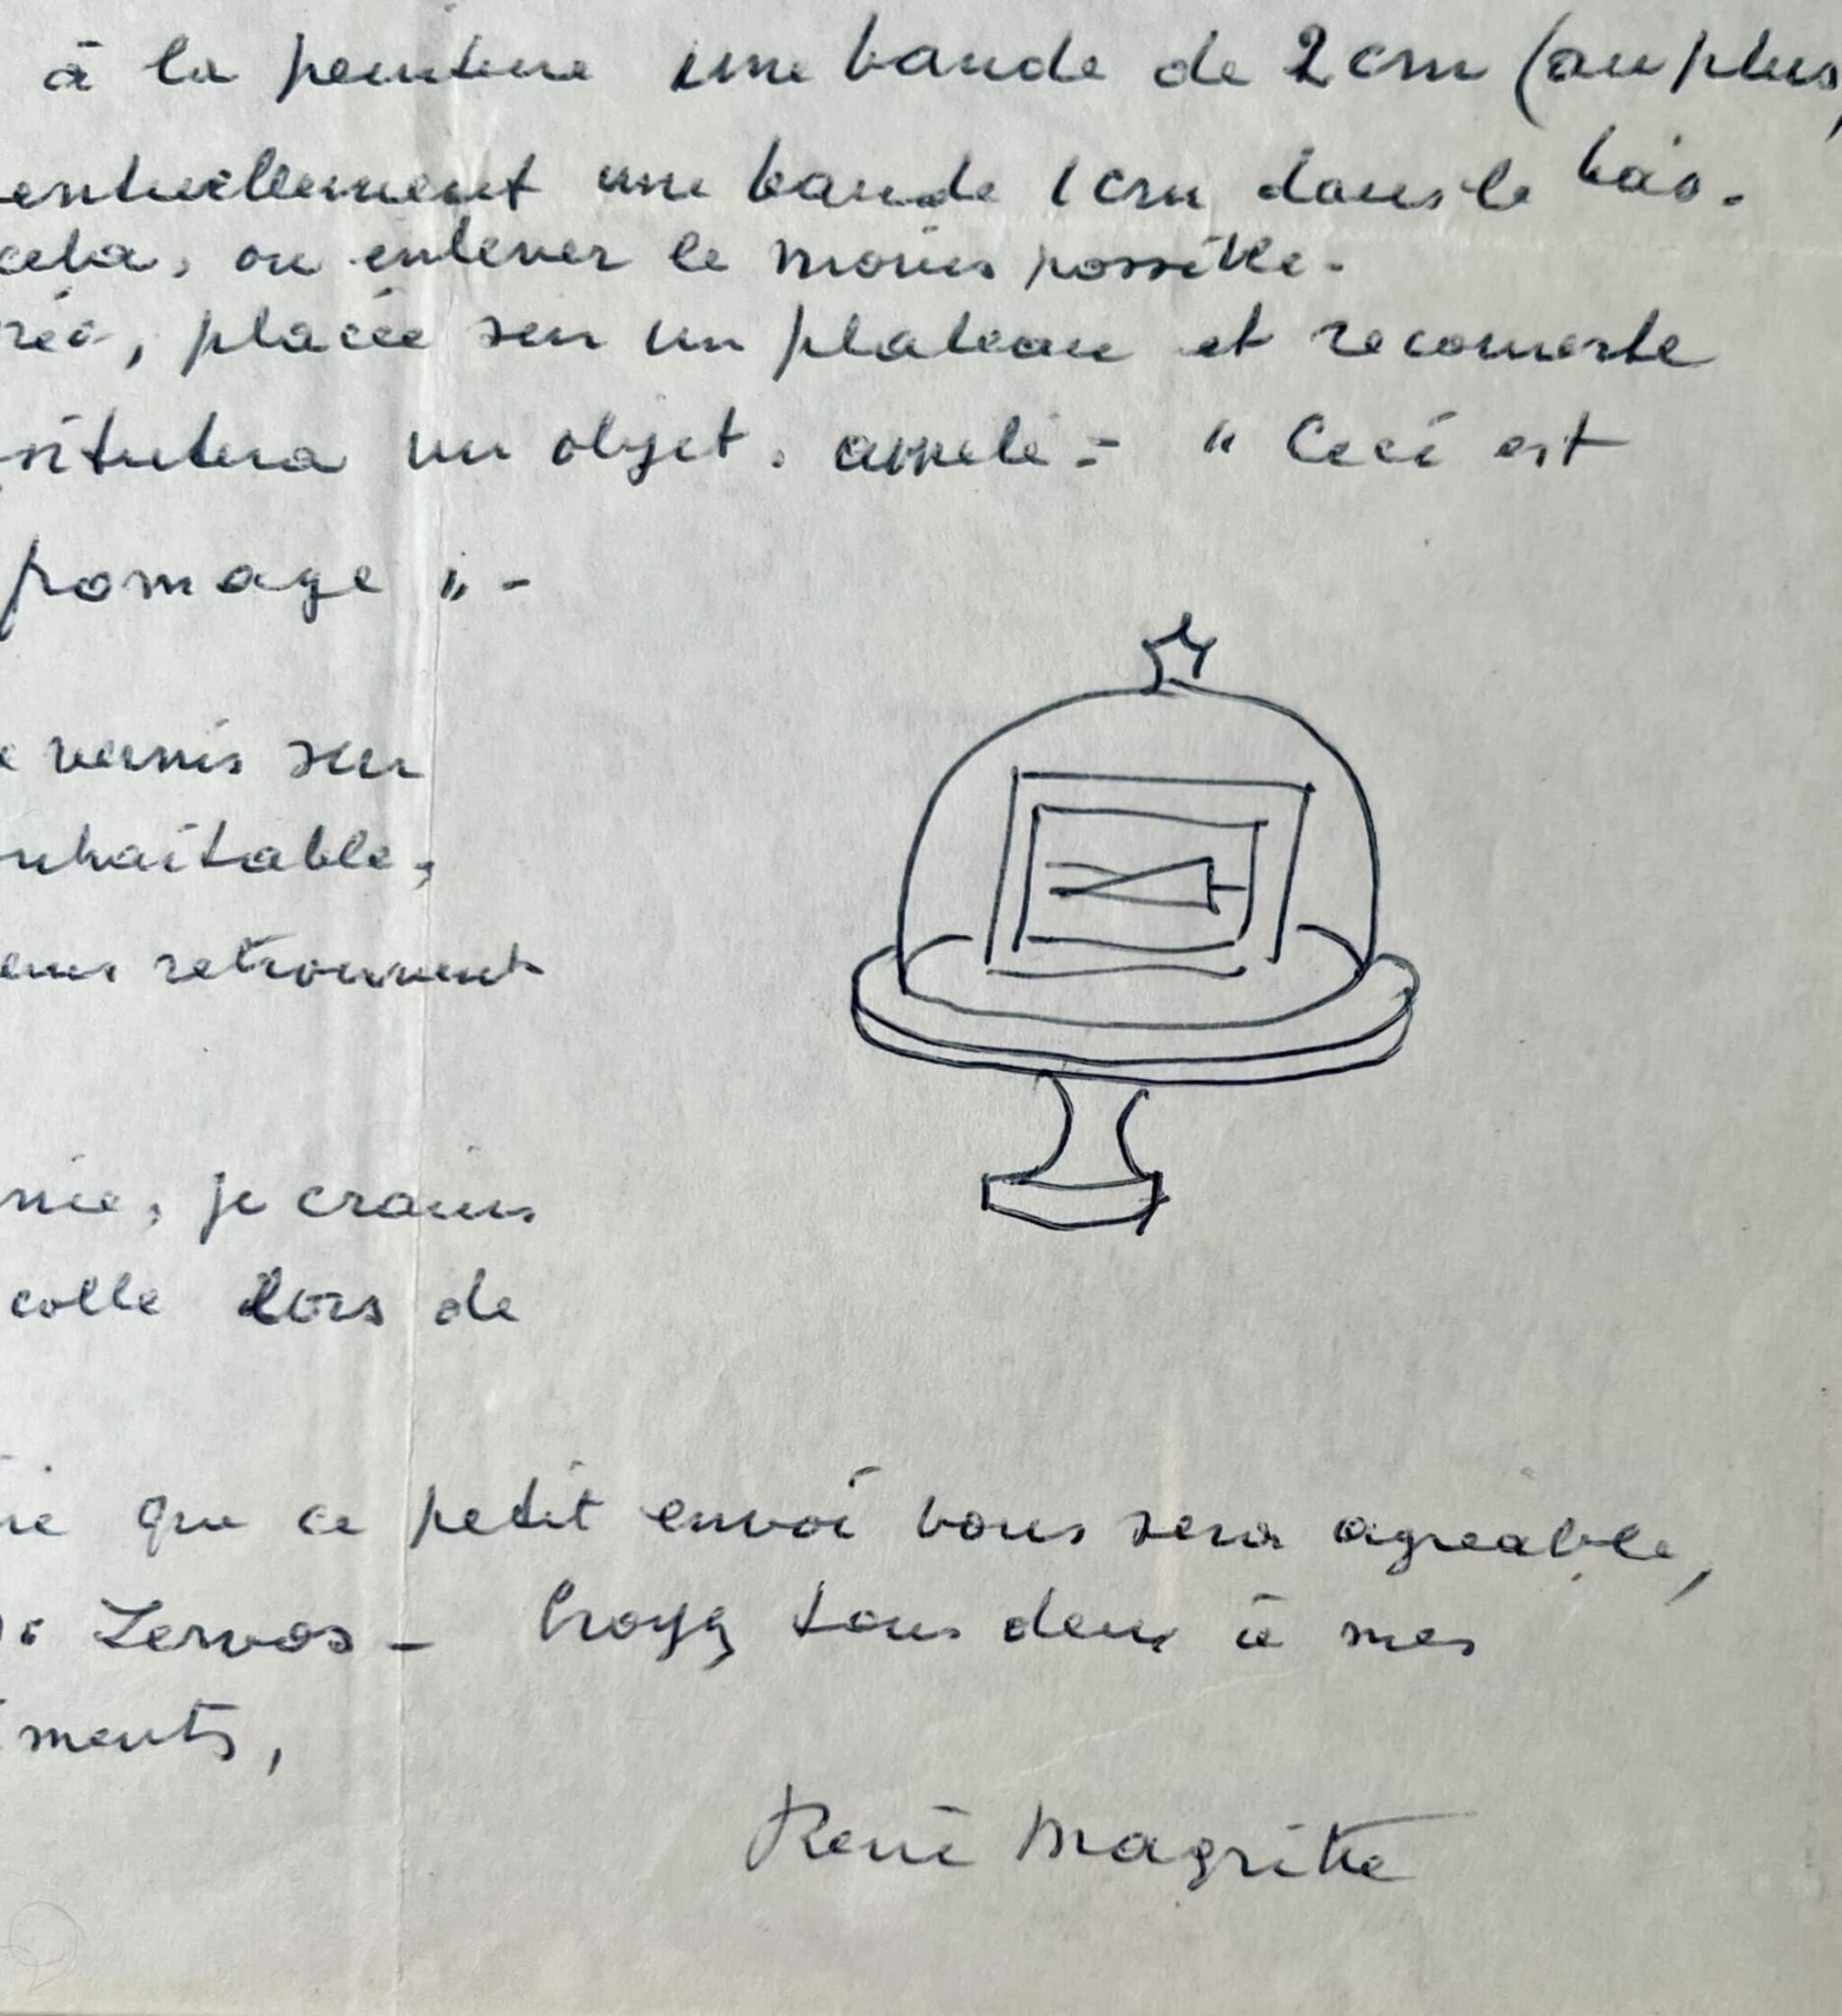 à la peinture une bande de 2 cm (au plus)
entuellement une bande 1 cm dans le bas.
cela, ou enlever le moins possible.
rée, placée sur un plateau et recouverte
stituera un objet, appelé = " Ceci est
fromage " -
e vernis sur
uhaitable,
retrouvent
nie, je crains
colle lors de
que ce petit envoi vous sera agréable,
Zervos - Croyez tous deux à mes
ments,
René Magritte